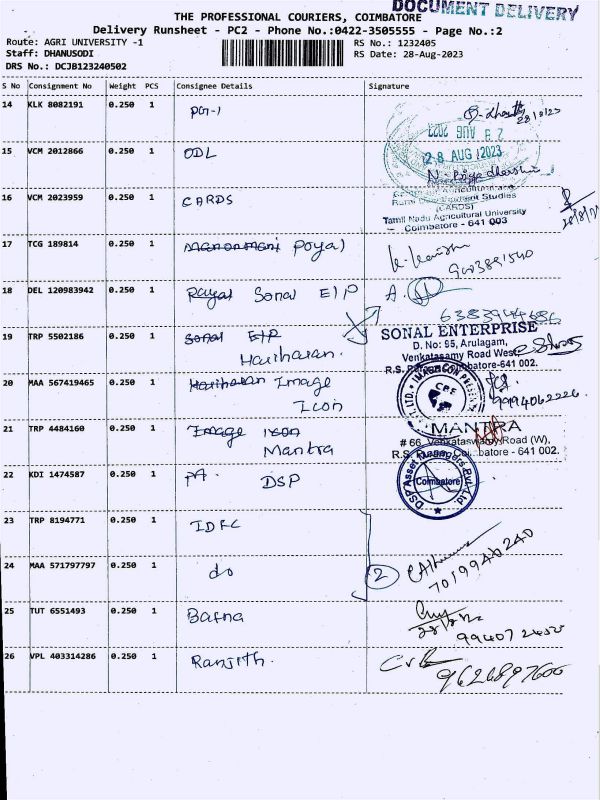 DOCUMENT DELIVERY
THE PROFESSIONAL COURIERS, COIMBATORE
Delivery Runsheet - PC2 - Phone No.:0422-3505555 - Page No.:2
Route: AGRI UNIVERSITY -1
RS No.: 1232405
Staff: DHANUSODI
RS Date: 28-Aug-2023
DRS No.: DCJB123240502
S No Consignment No Weight PCS Consignee Details Signature
14 KLK 8082191 0.250 1 PG-1
28 AUG 2023
15 VCM 2012866 0.250 1 ODL
28 AUG 2023
16 VCM 2023959 0.250 1 CARDS
Rural Development Studies
(CARDS)
Tamil Nadu Agricultural University
Coimbatore - 641 003
17 TCG 189814 0.250 1 Manonmani Poyal
18 DEL 120983942 0.250 1 Rayal Sonal E|P A.
6383944686
19 TRP 5502186 0.250 1 Sonal E|P
Hariharan.
SONAL ENTERPRISE
D. No: 95, Arulagam,
Venkatasamy Road West,
Coimbatore-641 002.
20 MAA 567419465 0.250 1 Hariharan Image
Icon
9994062226
21 TRP 4484160 0.250 1 Image Icon
Mantra
MANTRA
# 66, Venkatasamy Road (W),
R.S. Puram, Coimbatore - 641 002.
22 KDI 1474587 0.250 1 PA. DSP
DSP Asset Managers Pvt. Ltd.
Coimbatore
23 TRP 8194771 0.250 1 IDFC
24 MAA 571797797 0.250 1 do
2
7019946240
25 TUT 6551493 0.250 1 Bafna
26 VPL 403314286 0.250 1 Ranjith.
9626897600